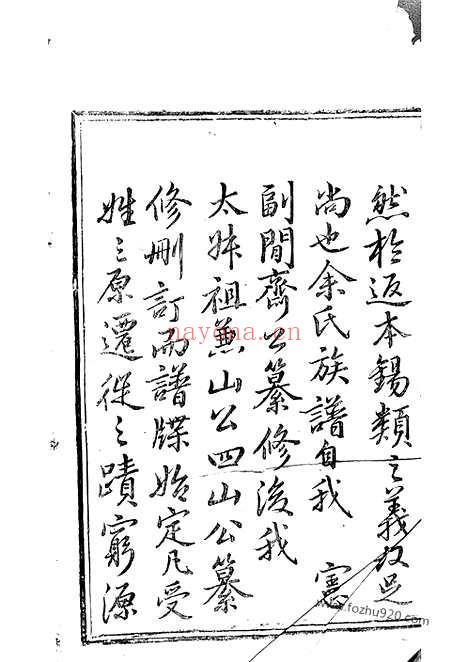 然於返本錫類之義故足
尚也余氏族譜自我　憲
副閒齋公纂修後我
太叔祖蕪山公四山公纂
修刪訂而譜牒始定凡受
姓之原遷徙之蹟窮源
nayona.cn
www.fozhu920.com